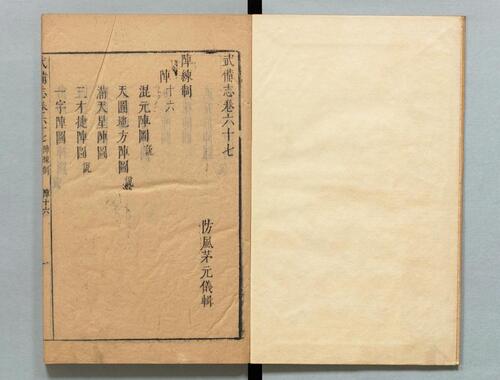 武備志卷六十七
防風茅元儀輯
陣練制
陣十六
混元陣圖說
天圓地方陣圖說
滿天星陣圖
三才捷陣圖說
一字陣圖
武備志卷六十七 陣練制 陣十六 一